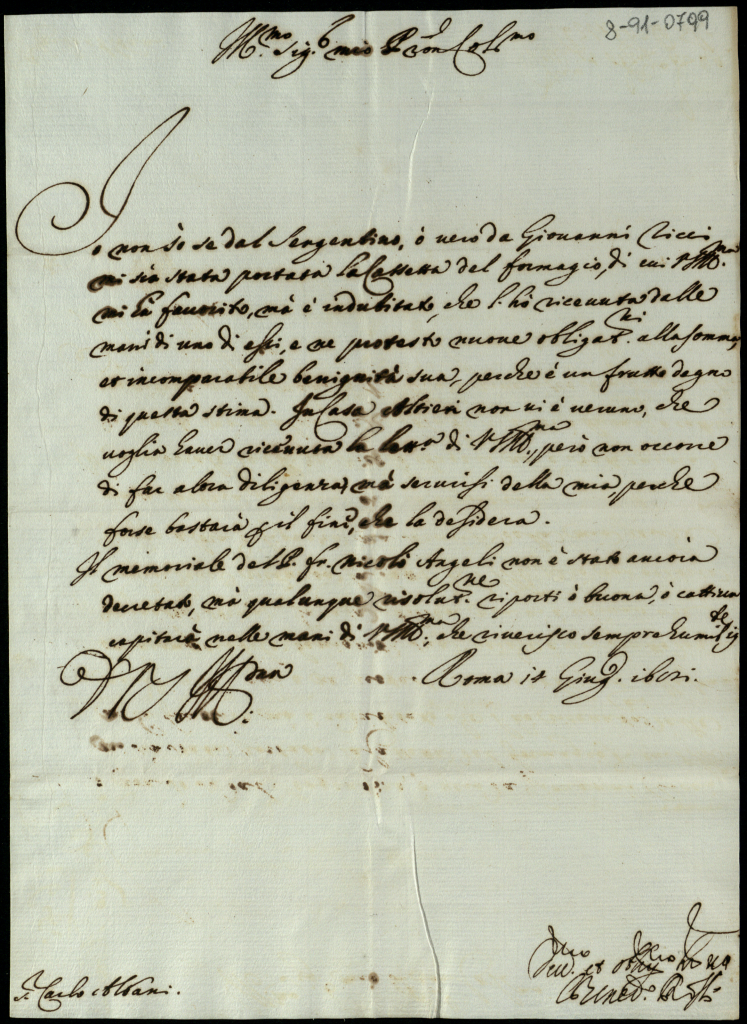 8-91-0799
Ill.mo Sig.r mio P.ron Col.mo
Io non sò se dal Sergentino, ò vero da Giovanni Ricci
mi sia stata portata la Cassetta del formagio, di cui V.S. Ill.ma
mi hà favorito, mà è indubitato, che l'hò ricevuta dalle
mani di uno di essi, e ne protesto nuove obligat.ni alla somma,
et incomparabile benignità sua, perche è un frutto degno
di questa stima. In Casa Altieri non vi è veruno, che
voglia haver ricevuta la lett.ra di V.S. Ill.ma, però non occorre
di far altra diligenza, mà servirsi della mia, perche
forse bastarà p il fine, che la desidera.
Il memoriale del P. fr. Nicolò Angeli non è stato ancora
decretato, mà qualunque risolut.ne riporti ò buona, ò cattiva
capitarà nelle mani di V.S. Ill.ma, che riverisco sempre humil.te
Di V.S. Ill.ma Roma 14 Giug.
S. Carlo Albani.
Dev.mo et Obl.mo
Bened.o